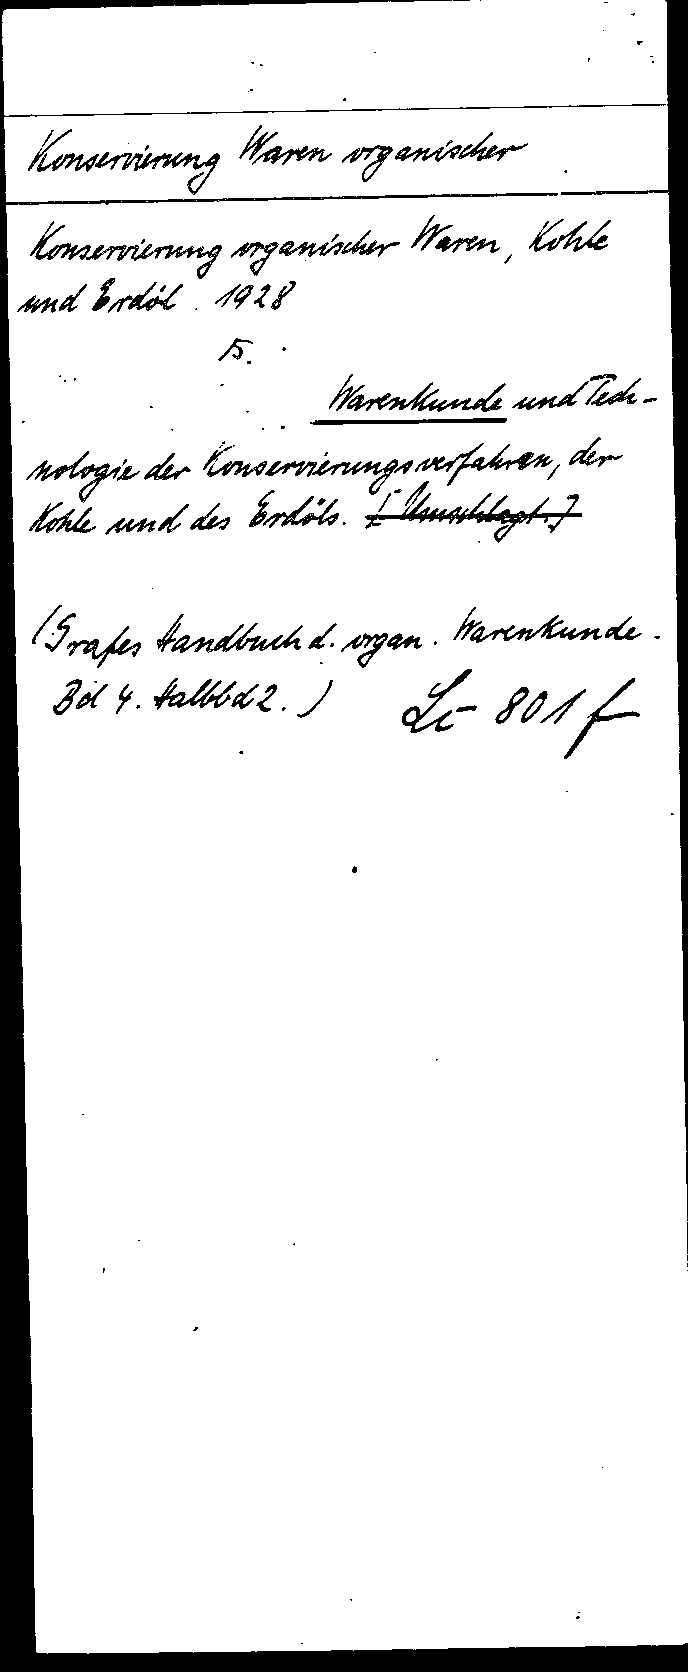 Konservierung Waren organischer
Konservierung organischer Waren, Kohle
und Erdöl. 1928
s.
Warenkunde und Tech-
nologie der Konservierungsverfahren, der
Kohle und des Erdöls. [Umschlagt.]
(Grafes Handbuch d. organ. Warenkunde.
Bd 4. Halbbd 2.) Lc- 801 f